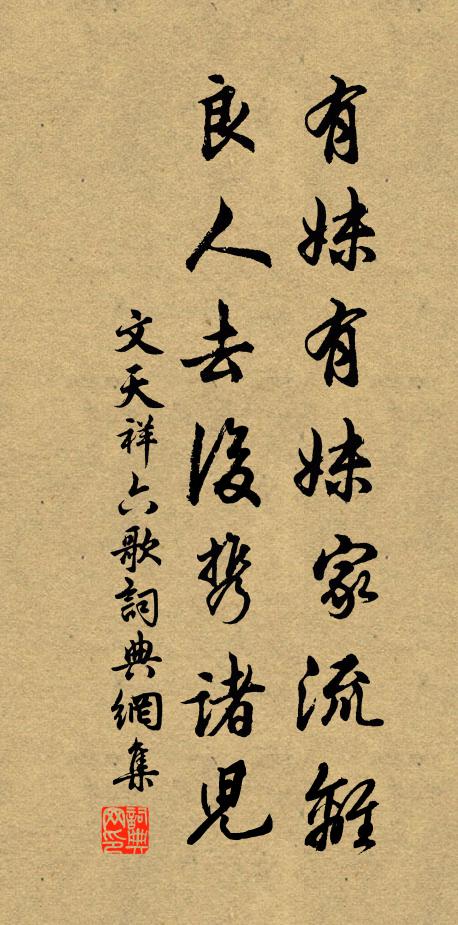 有妹有妹家流離
良人去後携諸兒
文天祥六歌詞典網集
詞典網印